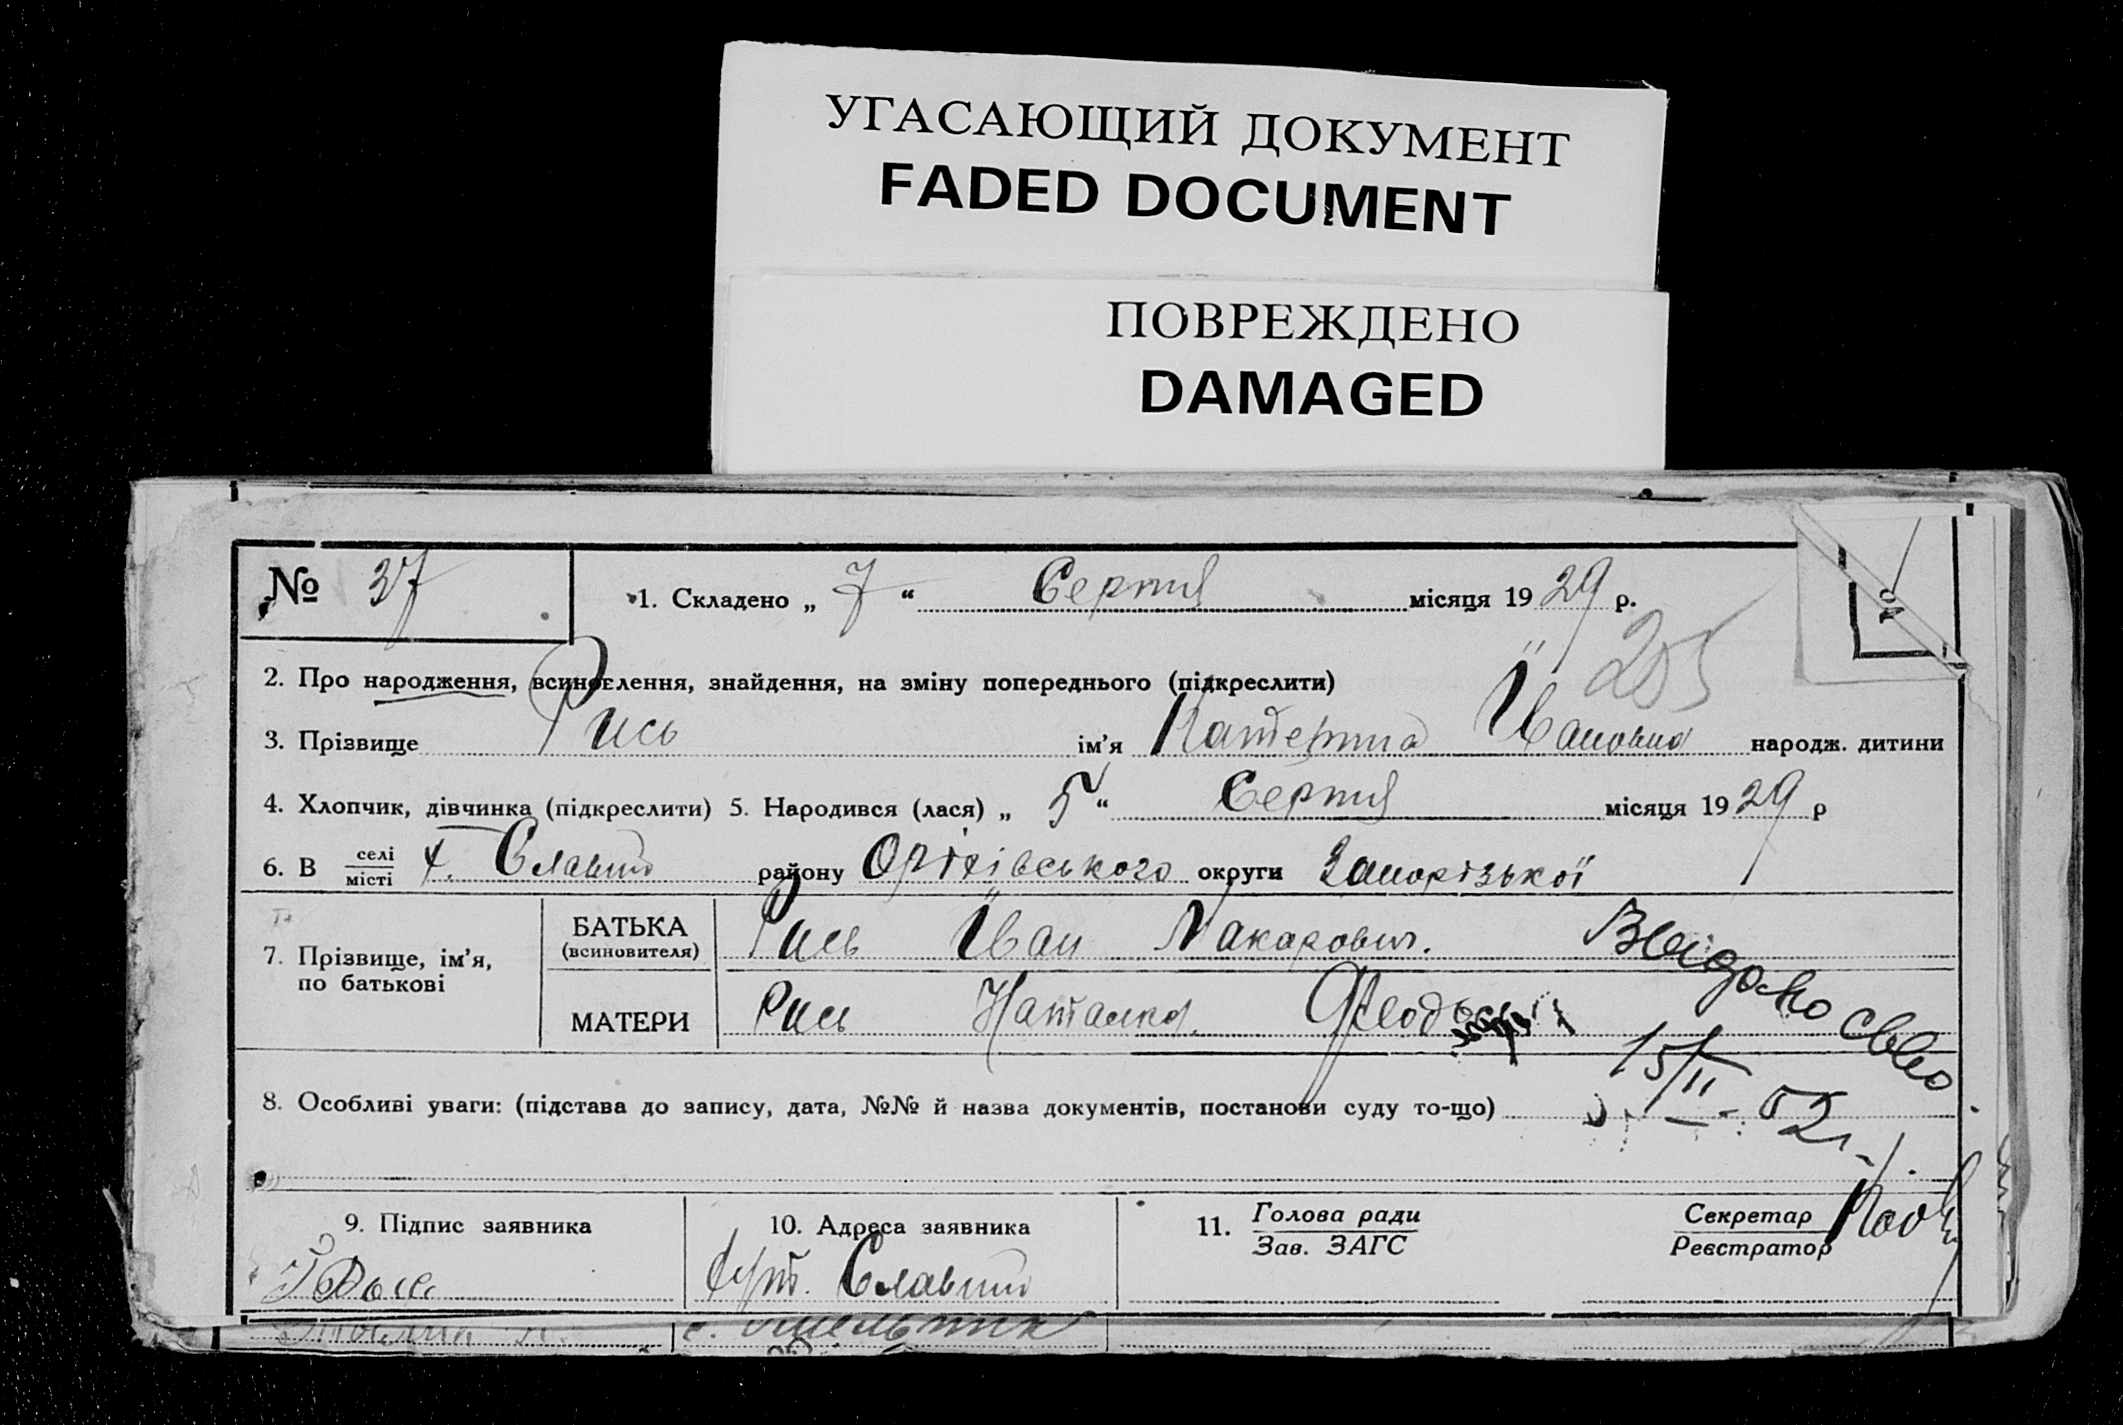 УГАСАЮЩИЙ ДОКУМЕНТ
FADED DOCUMENT
ПОВРЕЖДЕНО
DAMAGED
№ 37
1. Складено „ 7 “ Серпня місяця 19 29 р.
№
255
2. Про народження, всиновлення, знайдення, на зміну попереднього (підкреслити)
3. Прізвище Рись ім'я Катерина Івановна народж. дитини
4. Хлопчик, дівчинка (підкреслити) 5. Народився (лася) „ 5 “ Серпня місяця 19 29 р
6. В селі місті х. Славний району Оріхівського округи Запорізької
7. Прізвище, ім'я, по батькові
БАТЬКА (всиновителя) Рись Іван Макарович.
МАТЕРИ Рись Наталка
Видано св-во
15/II - 52
8. Особливі уваги: (підстава до запису, дата, №№ й назва документів, постанови суду то-що)
9. Підпис заявника
10. Адреса заявника
11. Голова ради
Зав. ЗАГС
Секретар
Реєстратор
хут. Славний